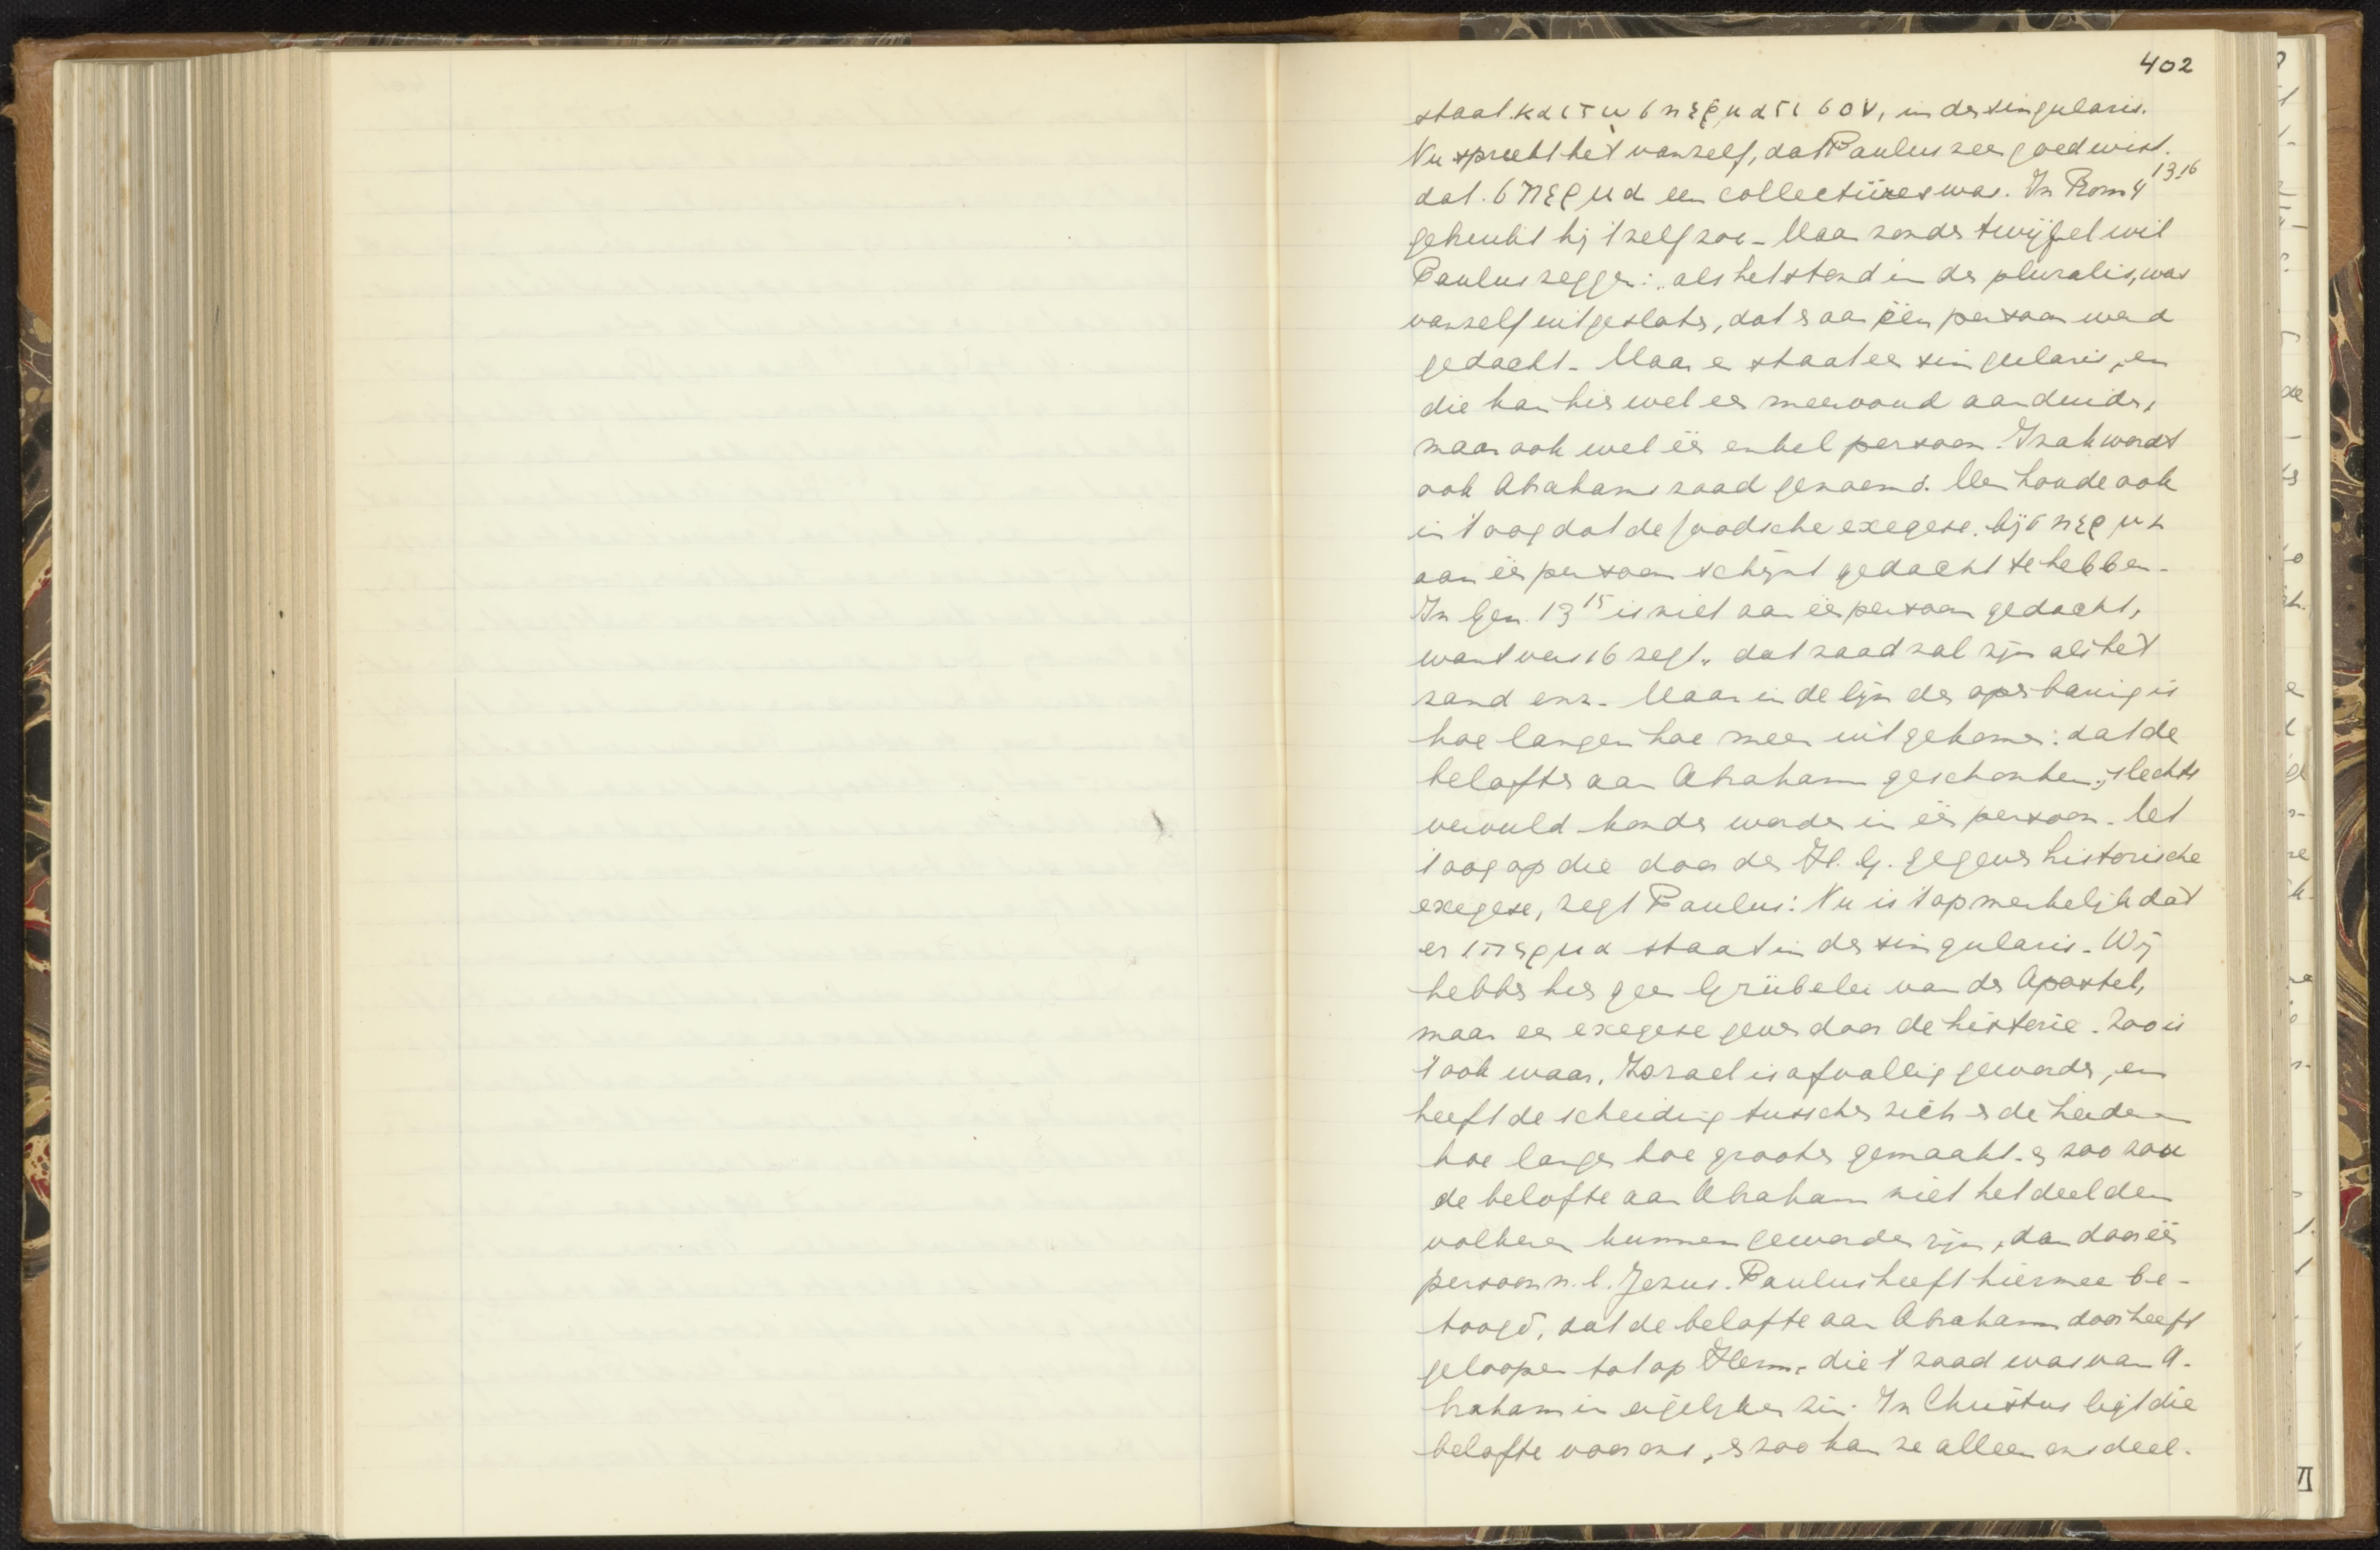 402
staat καὶ τῷ σπέρματί σου, in den singularis.
Nu spreekt het vanzelf, dat Paulus zeer goed wist.
dat σπέρμα een collectivum was. In Rom 4 13.16
gebruikt hij 't zelf zoo - Maar zonder twijfel wil
Paulus zeggen: „als het stond in den pluralis, was
vanzelf uitgesloten, dat er aan één persoon werd
gedacht - Maar er staat een singularis, en
die kan hier wel een meervoud aanduiden,
maar ook wel één enkel persoon. Izak wordt
ook Abrahams zaad genoemd. Men houde ook
in 't oog dat de Joodsche exegese bij σπέρμα
aan één persoon schijnt gedacht te hebben -
In Gen. 13 15 is niet aan één persoon gedacht,
want vers 16 zegt „dat zaad zal zijn als het
zand enz - Maar in de lijn der openbaring is
hoe langer hoe meer uitgekomen: dat de
beloften aan Abraham geschonken, slechts
vervuld konden worden in één persoon - Met
't oog op die door den H. G. gegeven historische
exegese, zegt Paulus: Nu is 't opmerkelijk dat
er σπέρμα staat in den singularis - Wij
hebben hier geen Grübelei van den Apostel,
maar een exegese gegeven door de historie. Zoo is
't ook waar, Israel is afvallig geworden, en
heeft de scheiding tusschen zich en de heidenen
hoe langer hoe grooter gemaakt - en zoo zou
de belofte aan Abraham niet het deel den
volkeren kunnen geworden zijn, dan door één
persoon n.l. Jezus. Paulus heeft hiermee be-
toogd, dat de belofte aan Abraham door heeft
geloopen tot op Hem, die 't zaad was van A-
braham in eigelijken zin. In Christus ligt die
belofte voor ons, en zoo kan ze alleen ons deel
VI